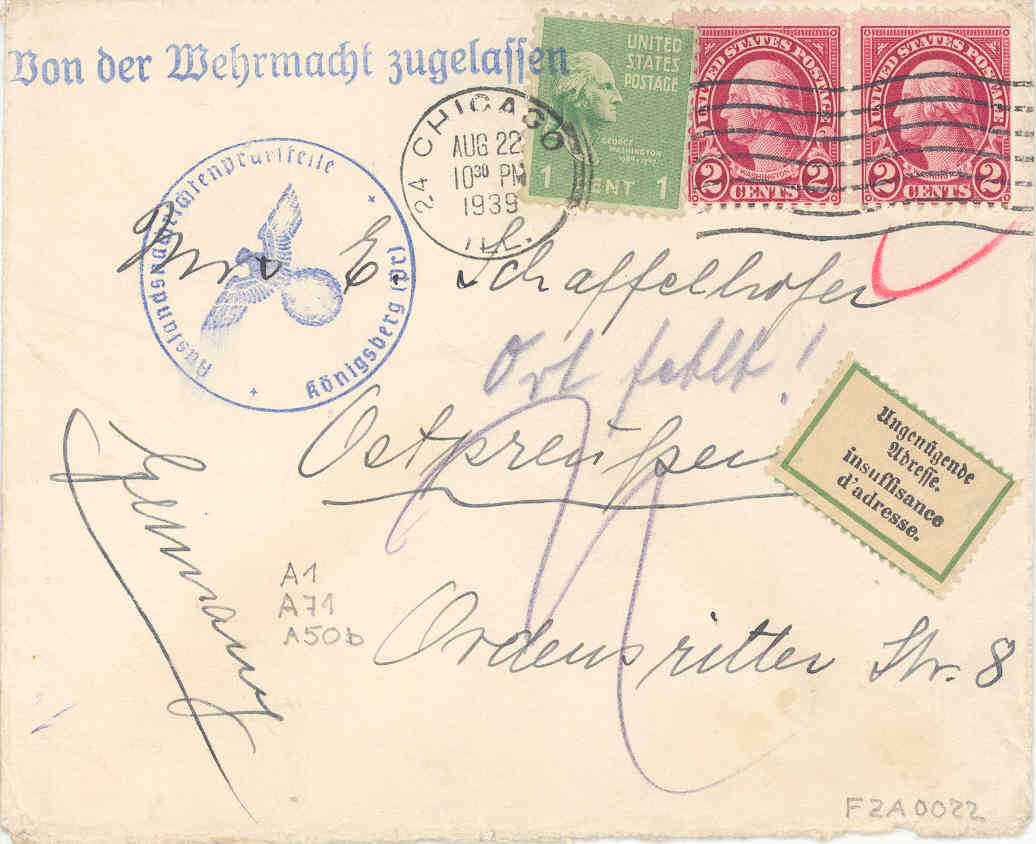 Von der Wehrmacht zugelassen
24 CHICAGO
AUG 22
10 30 PM
1939
ILL.
UNITED
STATES
POSTAGE
GEORGE
WASHINGTON
1 CENT 1
UNITED STATES POSTAGE
WASHINGTON
2 CENTS 2
UNITED STATES POSTAGE
WASHINGTON
2 CENTS 2
Auslandsnachrichtenprüfstelle
Königsberg (Pr)
E. Schaffelhofer
Ort fehlt!
Ostpreußen
Ungenügende
Adresse.
insuffisance
d'adresse.
Germany
A1
A71
A50b
Ordensritter Str. 8
F2A0022